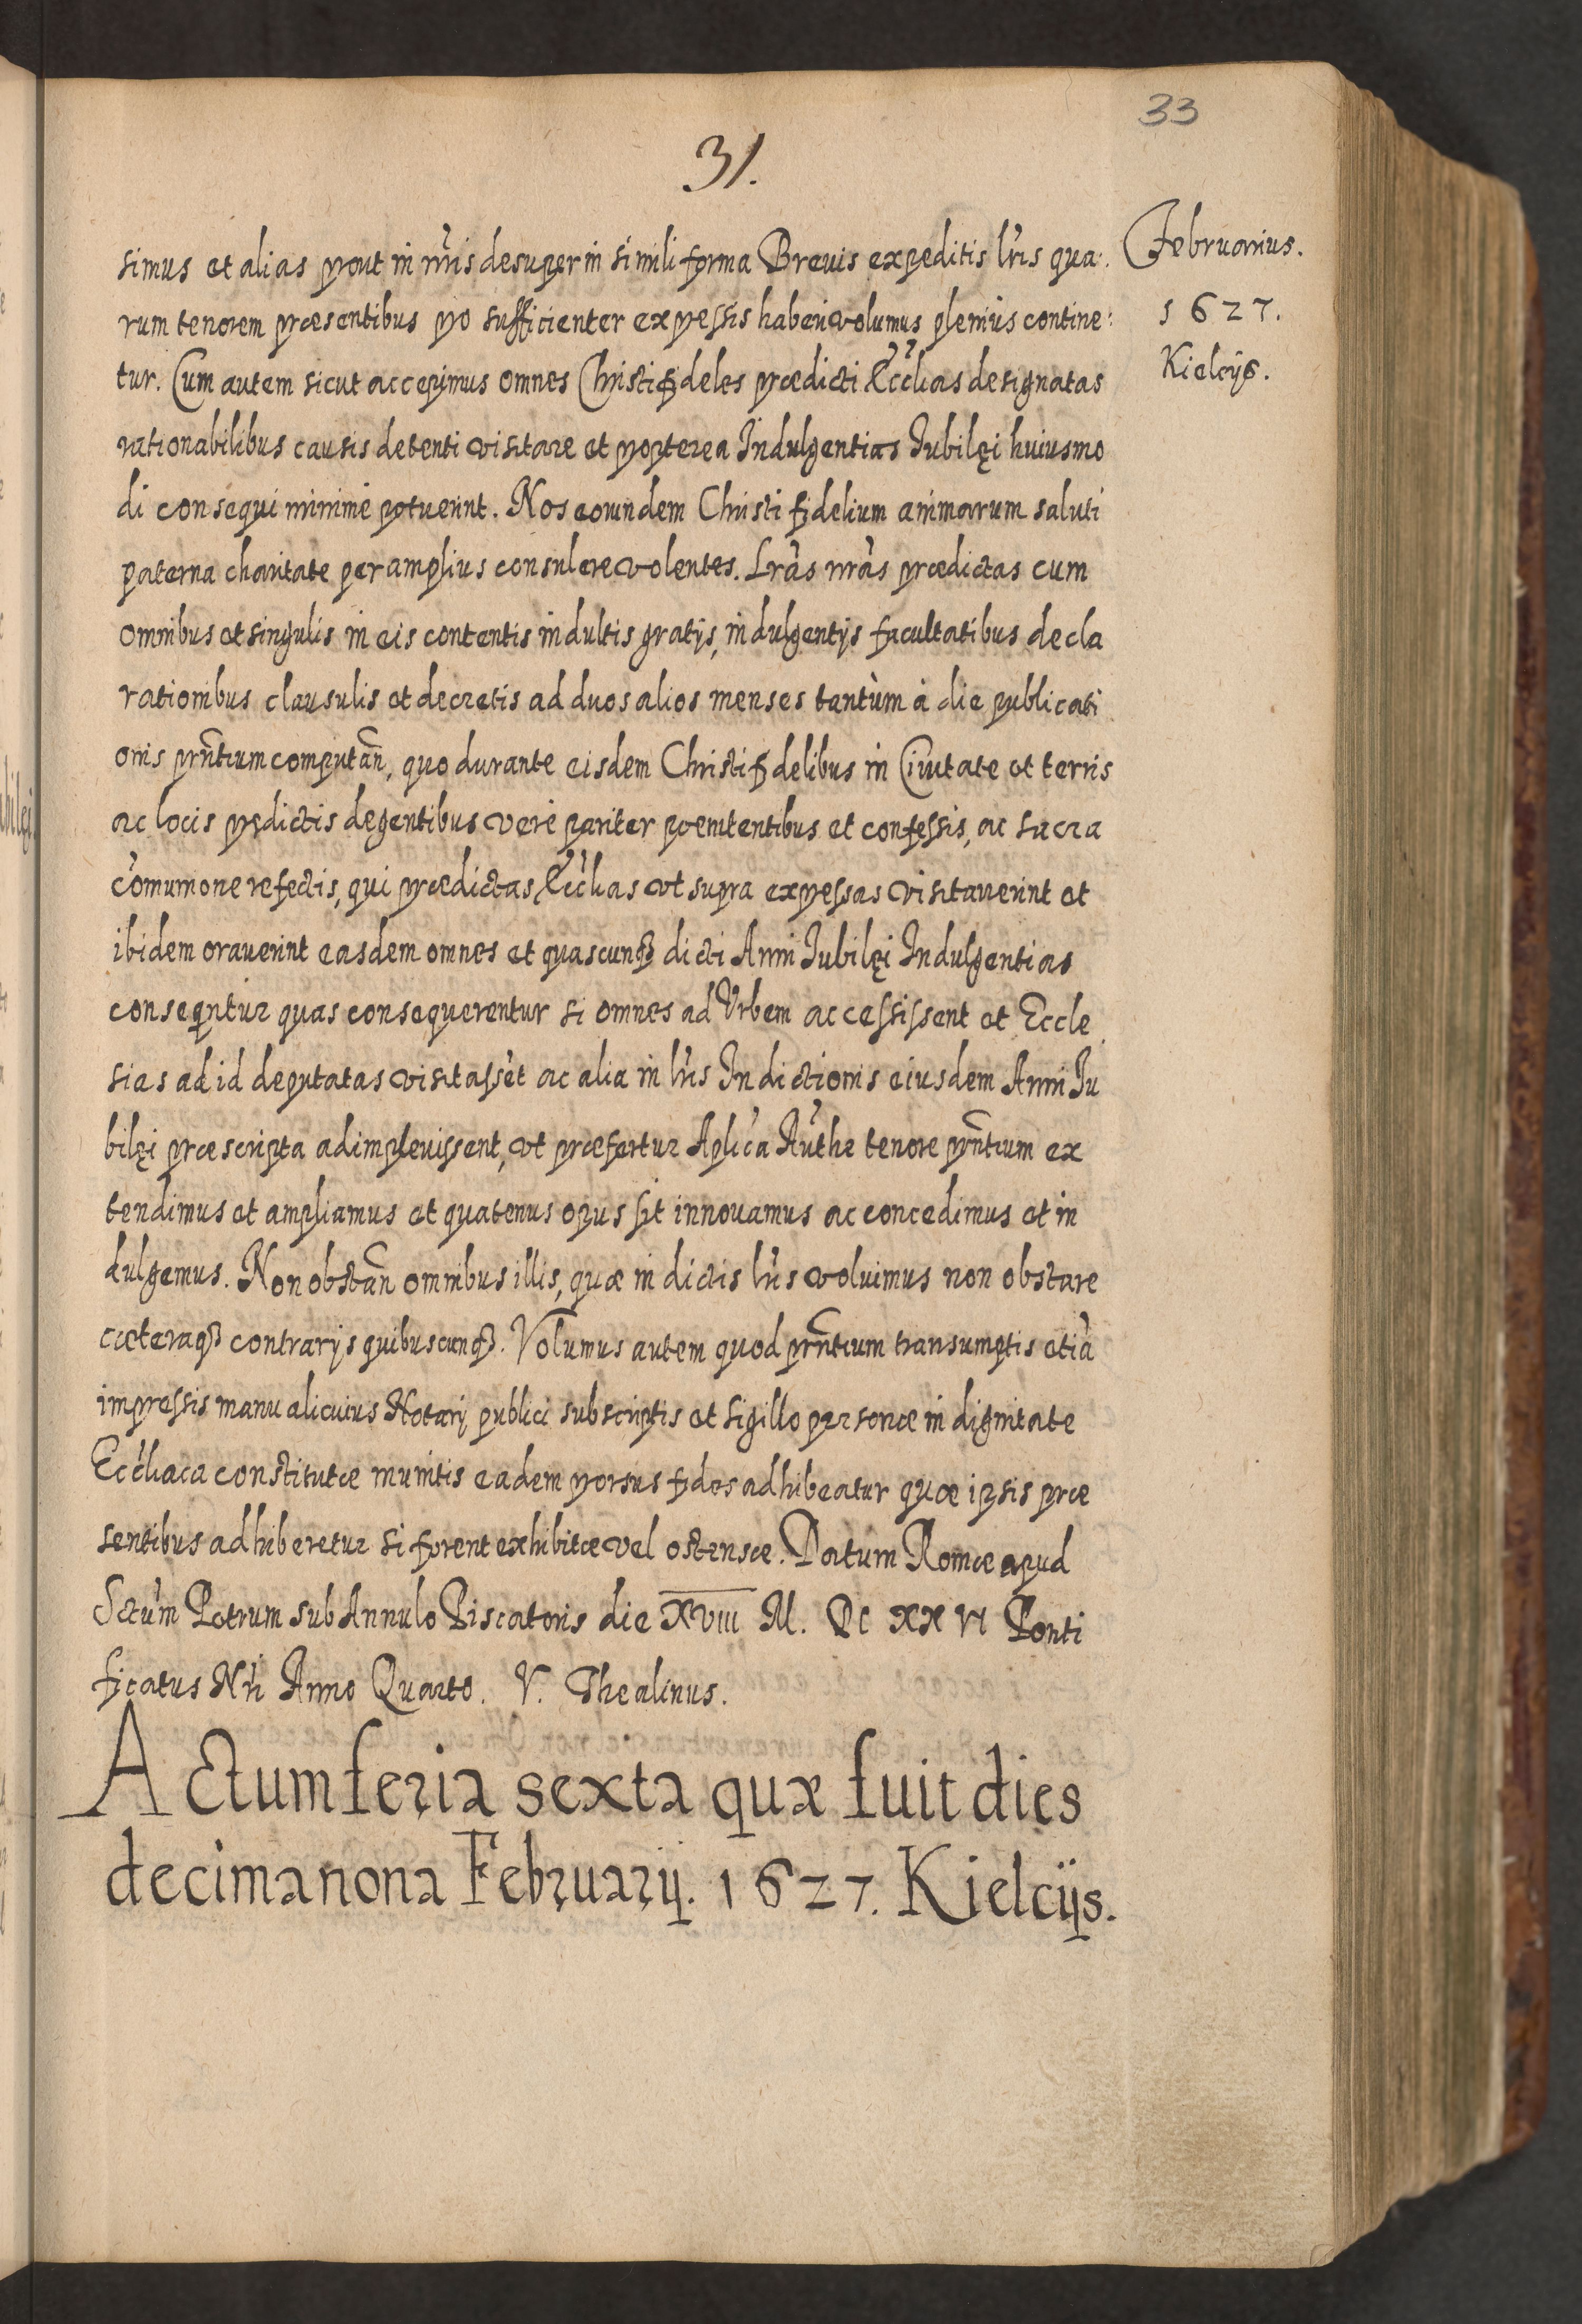 33
31.
Februarius.
1627.
Kielcijs.
simus et alias prout in nr̃is desuper in simili forma Breuis expeditis lr̃is qua:
rum tenorem præsentibus pro sufficienter expressis haberi volumus plenius contine:
tur. Cum autem sicut accepimus omnes Christifideles prædicti Eccl̃ias designatas
rationabilibus causis detenti visitare et propterea Indulgentias Iubilęi huiusmo
di consequi minimè potuerint. Nos eorundem Christi fidelium animarum saluti
paterna charitate per amplius consulere volentes. Lr̃as nr̃as prædictas cum
omnibus et singulis in eis contentis indultis gratijs, indulgentijs facultatibus decla
rationibus clausulis et decretis ad duos alios menses tantùm à die publicati
onis pr̃ntium computañ, quo durante eisdem Christifidelibus in Ciuitate et terris
ac locis prędictis degentibus verè pariter poenitentibus et confessis, ac sacra
com̃unione refectis, qui prædictas Eccl̃ias vt supra expressas visitauerint et
ibidem orauerint easdem omnes et quascunq3 dicti Anni Iubilęi Indulgentias
conseqñtur quas consequerentur si omnes ad Vrbem accessissent et Eccle
sias ad id deputatas visitassẽt ac alia in lr̃is Indictionis eiusdem Anni Iu
bilęi præscripta adimpleuissent, vt præfertur Aplica Authe tenore pr̃ntium ex
tendimus et ampliamus et quatenus opus sit innouamus ac concedimus et in
dulgemus. Non obstañ omnibus illis, quæ in dictis lr̃is voluimus non obstare
cæteraq3 contrarijs quibuscunq3. Volumus autem quod pr̃ntium transumptis etiã
impressis manu alicuius Notarij publici subscriptis et sigillo personæ in dignitate
Eccl̃iaca constitutæ munitis eadem prorsus fides adhibeatur quæ ipsis præ
sentibus adhiberetur si forent exhibitæ vel ostensæ. Datum Romæ apud
Sctũm Petrum sub Annulo Piscatoris die XVIII M. DC XXVI Ponti
ficatus Nr̃i Anno Quarto. V. Thealinus.
Actum feria sexta quæ fuit dies
decimanona Februarij. 1627. Kielcijs.